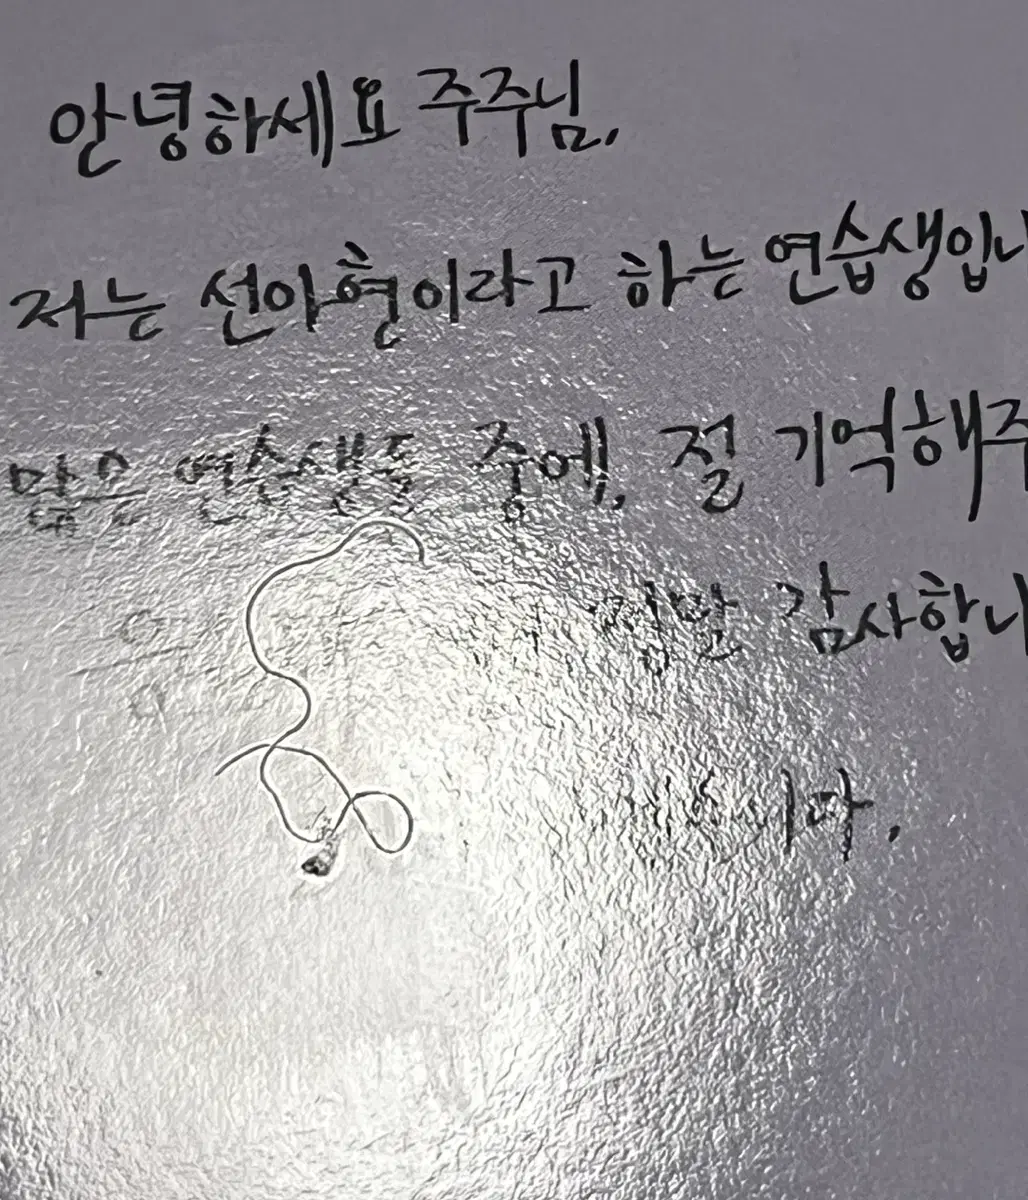 안녕하세요 주주님,
저는 선아현이라고 하는 연습생입니
많은 연습생들 중에, 절 기억해주
정말 감사합니